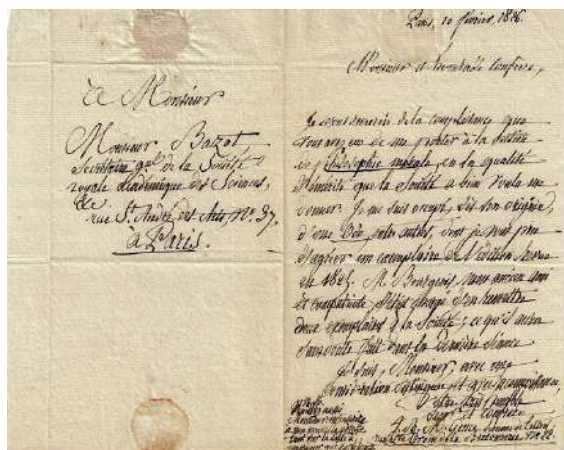 à Monsieur
Monsieur Bazot,
Secrétaire gal. de la Société
royale académique des Sciences,
&a
rue St. André des Arts, No. 37.
à Paris.
Paris, 10 février, 1826.
Monsieur et honorable Confrère,
Je vous remercie de la complaisance que
vous avez eue de me porter à la Section
de philosophie morale, en la qualité
d'émérite que la Société a bien voulu me
donner. Je me suis occupé, dès son origine,
d'une entre autres, dont je vous prie
d'agréer un exemplaire de l'édition
en 1825. M. Bourgeois, mon ancien ami
et compatriote, s'était chargé d'en remettre
deux exemplaires à la Société; ce qu'il aura
sans doute fait dans la dernière séance
Je suis, Monsieur, avec une
considération distinguée et reconnaissance,
Votre très humble
Serv. et Confrère
J. B. M. Gence
rue Ste Croix de la Bretonnerie No. 22.